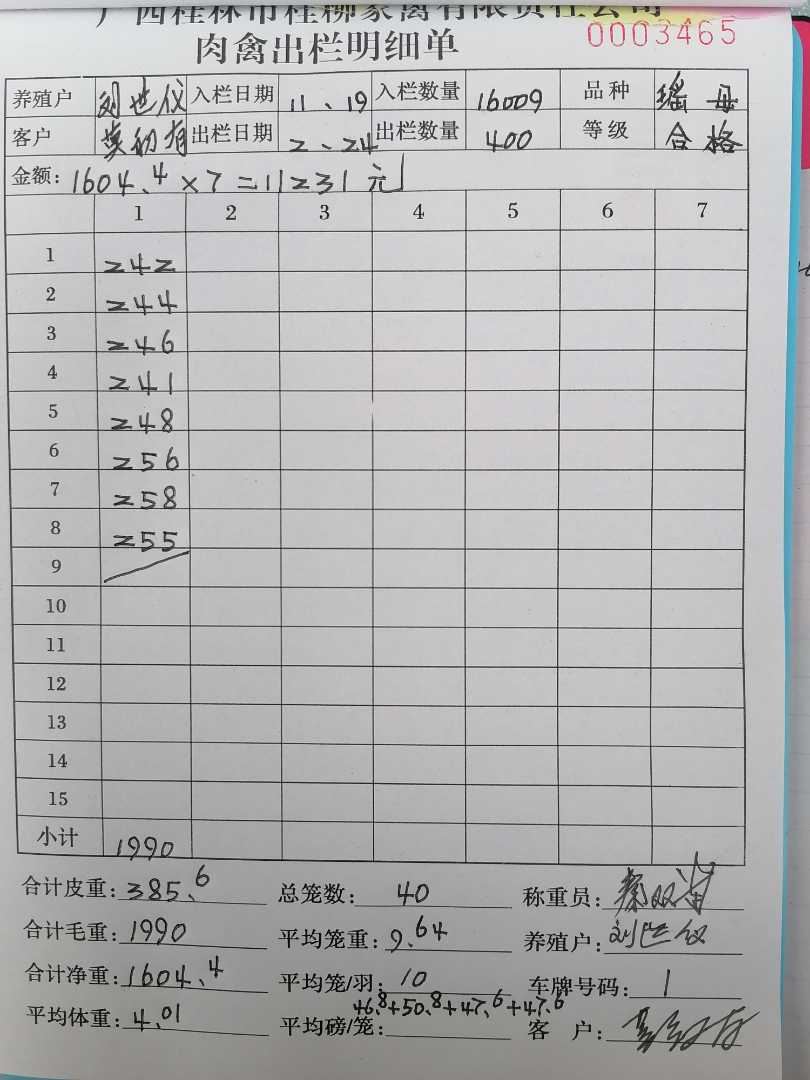 广西桂林市桂柳家禽有限责任公司
肉禽出栏明细单 0003465
养殖户 刘世仪 入栏日期 11、19 入栏数量 16009 品种 瑶母
客户 莫初有 出栏日期 2、24 出栏数量 400 等级 合格
金额: 1604.4×7=11231元
1 2 3 4 5 6 7
1 242
2 244
3 246
4 241
5 248
6 256
7 258
8 255
9
10
11
12
13
14
15
小计 1990
合计皮重: 385.6 总笼数: 40 称重员:
合计毛重: 1990 平均笼重: 9.64 养殖户: 刘世仪
合计净重: 1604.4 平均笼/羽: 10 车牌号码: 1
46.8+50.8+47.6+47.6
平均体重: 4.01 平均磅/笼: 客户: